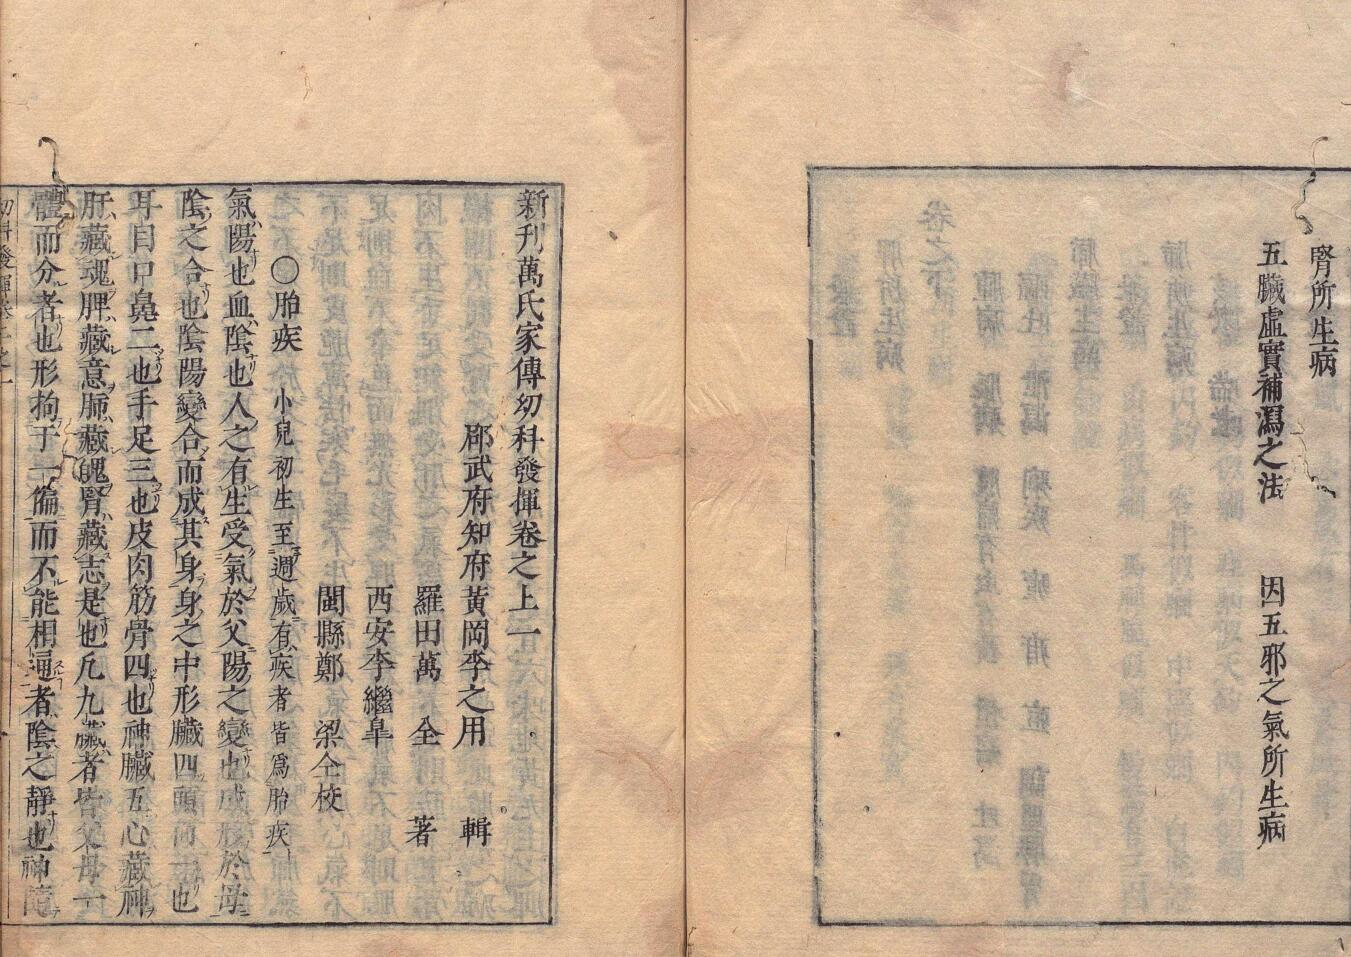 腎所生病
五臟虛實補瀉之法 因五邪之氣所生病
新刊萬氏家傳幼科發揮卷之上一
郧武府知府黃岡李之用 輯
羅田萬 全 著
西安李繼皐
閩縣鄭 梁仝校
○胎疾 小兒初生至週歲有疾者皆爲胎疾
氣陽也血陰也人之有生受氣於父陽之變也成形於母
陰之合也陰陽變合而成其身身之中形臟四頭角一也
耳目口鼻二也手足三也皮肉筋骨四也神臟五心藏神
肝藏魂脾藏意肺藏魄腎藏志是也凢九臟者皆父母一
體而分者也形拘于一徧而不能相通者陰之靜也神隨
幼科發揮卷上之一